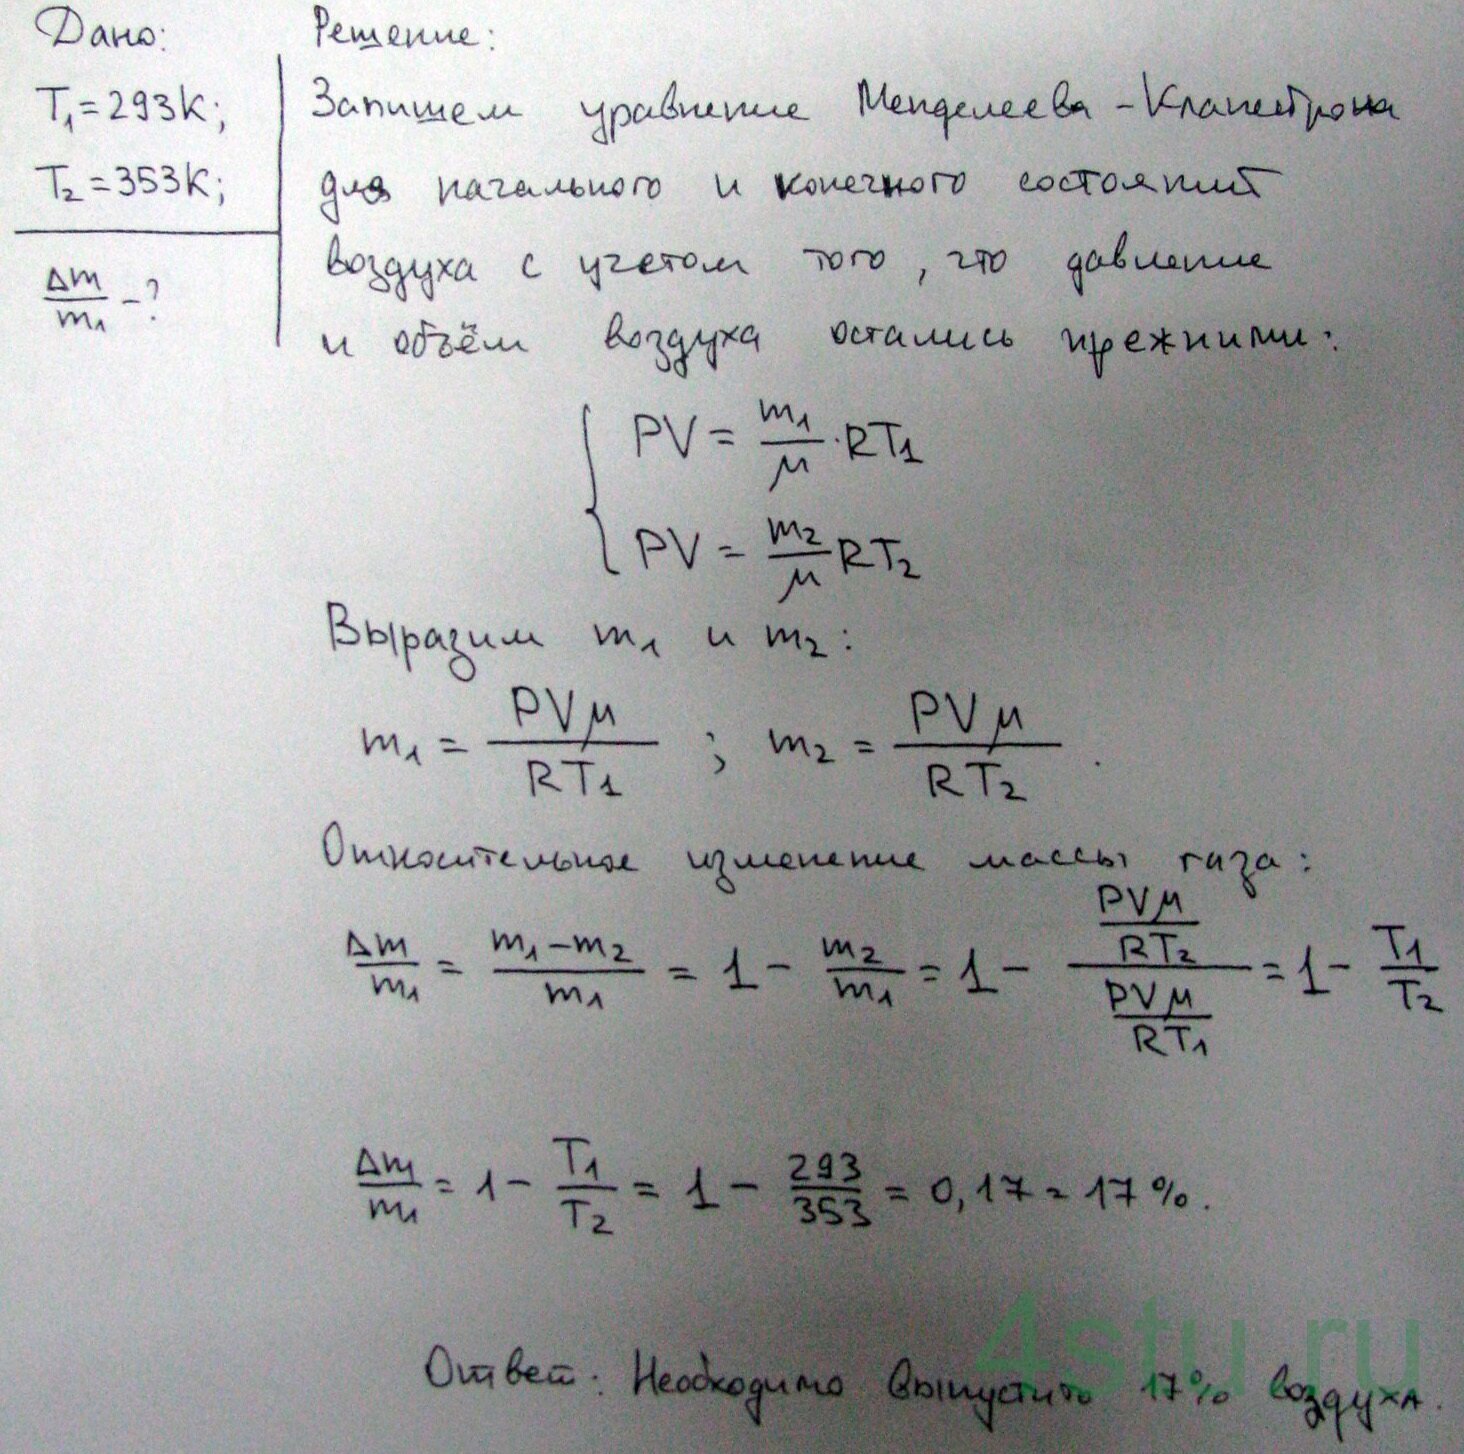 Дано:
T₁=293K;
T₂=353K;
Δm/m₁ -?
Решение:
Запишем уравнение Менделеева-Клапейрона
для начального и конечного состояний
воздуха с учетом того, что давление
и объём воздуха остались прежними:
PV = m₁/μ · RT₁
PV = m₂/μ RT₂
Выразим m₁ и m₂:
m₁ = PVμ/RT₁ ; m₂ = PVμ/RT₂.
Относительное изменение массы газа:
Δm/m₁ = (m₁-m₂)/m₁ = 1 - m₂/m₁ = 1 - (PVμ/RT₂)/(PVμ/RT₁) = 1 - T₁/T₂
Δm/m₁ = 1 - T₁/T₂ = 1 - 293/353 = 0,17 = 17%.
Ответ: Необходимо выпустить 17% воздуха.
4stu.ru